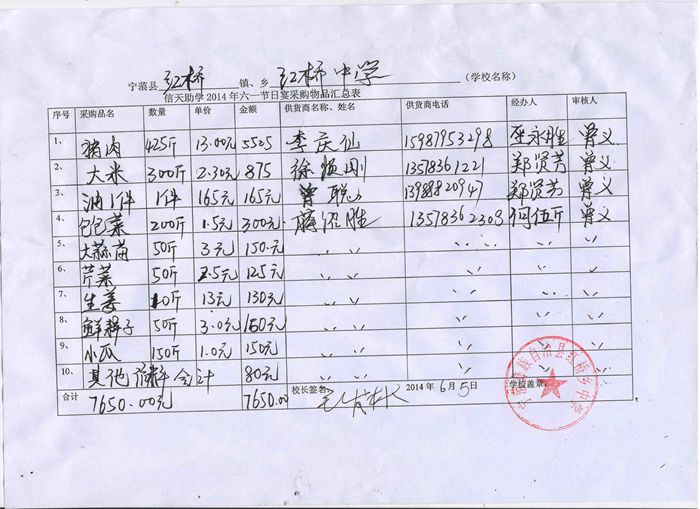 宁蒗县 红桥 镇、乡 红桥中学 (学校名称)
信天助学2014年六一节日宴采购物品汇总表
序号 采购品名 数量 单价 金额 供货商名称、姓名 供货商电话 经办人 审核人
1、 猪肉 425斤 13.00元 5525 李庆仙 15987953298 永胜 曾义
2、 大米 300斤 2.30元 875 徐 刚 13578361221 郑贤芳 曾义
3、 油1件 1件 165元 165元 曾聪 13988820947 郑贤芳 曾义
4、 包包菜 200斤 1.5元 300元 胜 13578362303 何伍斤 曾义
5、 大蒜苗 50斤 3元 150元 〃 〃 〃 〃
6、 芹菜 50斤 2.5元 125元 〃 〃 〃 〃
7、 生姜 10斤 13元 130元 〃 〃 〃 〃
8、 鲜辣子 50斤 3.0元 150元 〃 〃 〃 〃
9、 小瓜 150斤 1.0元 150元 〃 〃 〃 〃
10、 其他 合计 80元
合计 7650.00元 7650.00 校长签名: 2014年6月5日 学校盖章:
宁蒗彝族自治县红桥乡中学